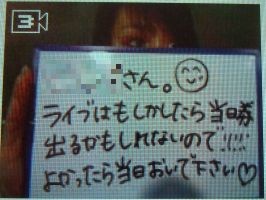 3
さん。
ライブはもしかしたら当日券
出るかもしれないので!!!!
よかったら当日おいで下さい♡